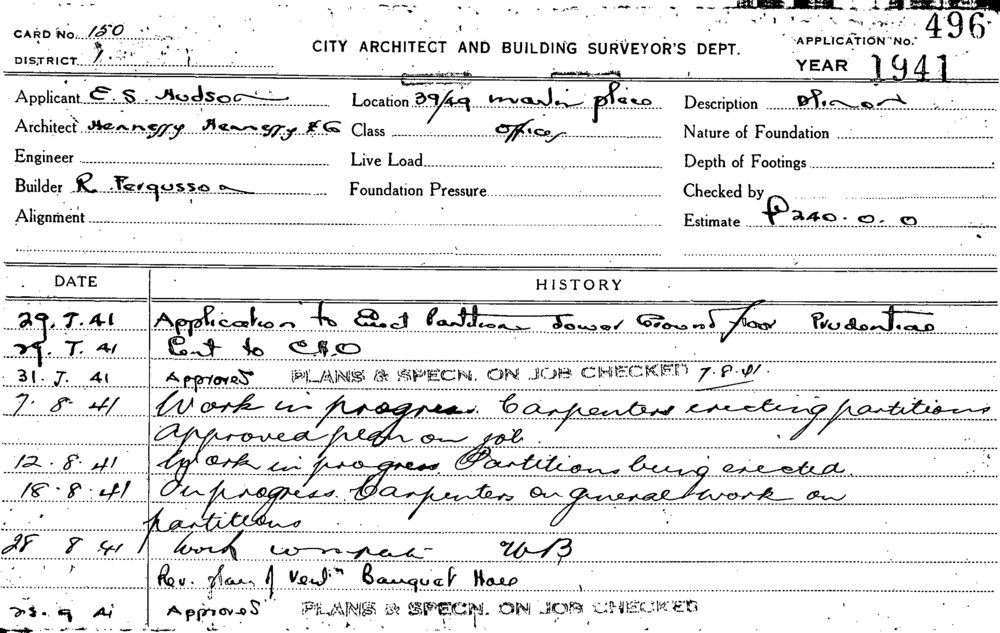 CARD No. 150
DISTRICT 1
CITY ARCHITECT AND BUILDING SURVEYOR'S DEPT.
APPLICATION No. 496
YEAR 1941
Applicant E. S. Hudson
Architect Hennessy Hennessy & Co
Engineer
Builder R Fergusson
Alignment
Location 39/49 Martin place
Class Offices
Live Load
Foundation Pressure
Description
Nature of Foundation
Depth of Footings
Checked by
Estimate £240.0.0
DATE HISTORY
29.7.41 Application to Erect Partitions Lower Ground floor Prudential
29.7.41 Sent to
31.7.41 Approved PLANS & SPECN. ON JOB CHECKED 7.8.41.
7.8.41 Work in progress. Carpenters erecting partitions
Approved plan on job.
12.8.41 Work in progress Partitions being erected.
18.8.41 In progress. Carpenters on general work on
partitions
28 8 41 Work complete WB
Rev. plan of Ventn Banquet Hall
23.9 41 Approved PLANS & SPECN. ON JOB CHECKED